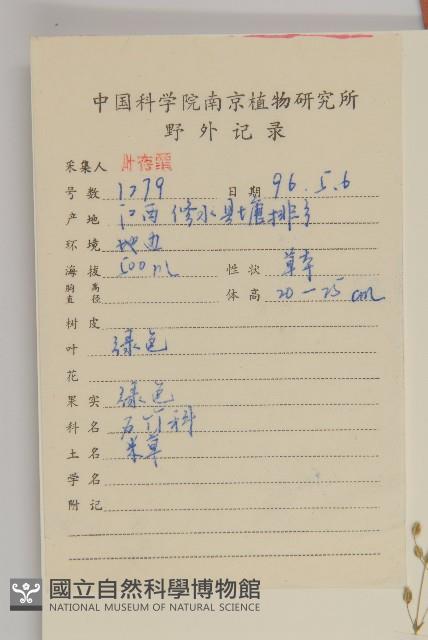 中国科学院南京植物研究所
野外记录
采集人 叶存粟
号数 1279 日期 96.5.6
产地 江西修水县墉排乡
环境 地边
海拔 500m 性状 草本
胸高直径 体高 20-25cm
树皮
叶 绿色
花
果实 绿色
科名 石竹科
土名 米草
学名
附记
國立自然科學博物館
NATIONAL MUSEUM OF NATURAL SCIENCE